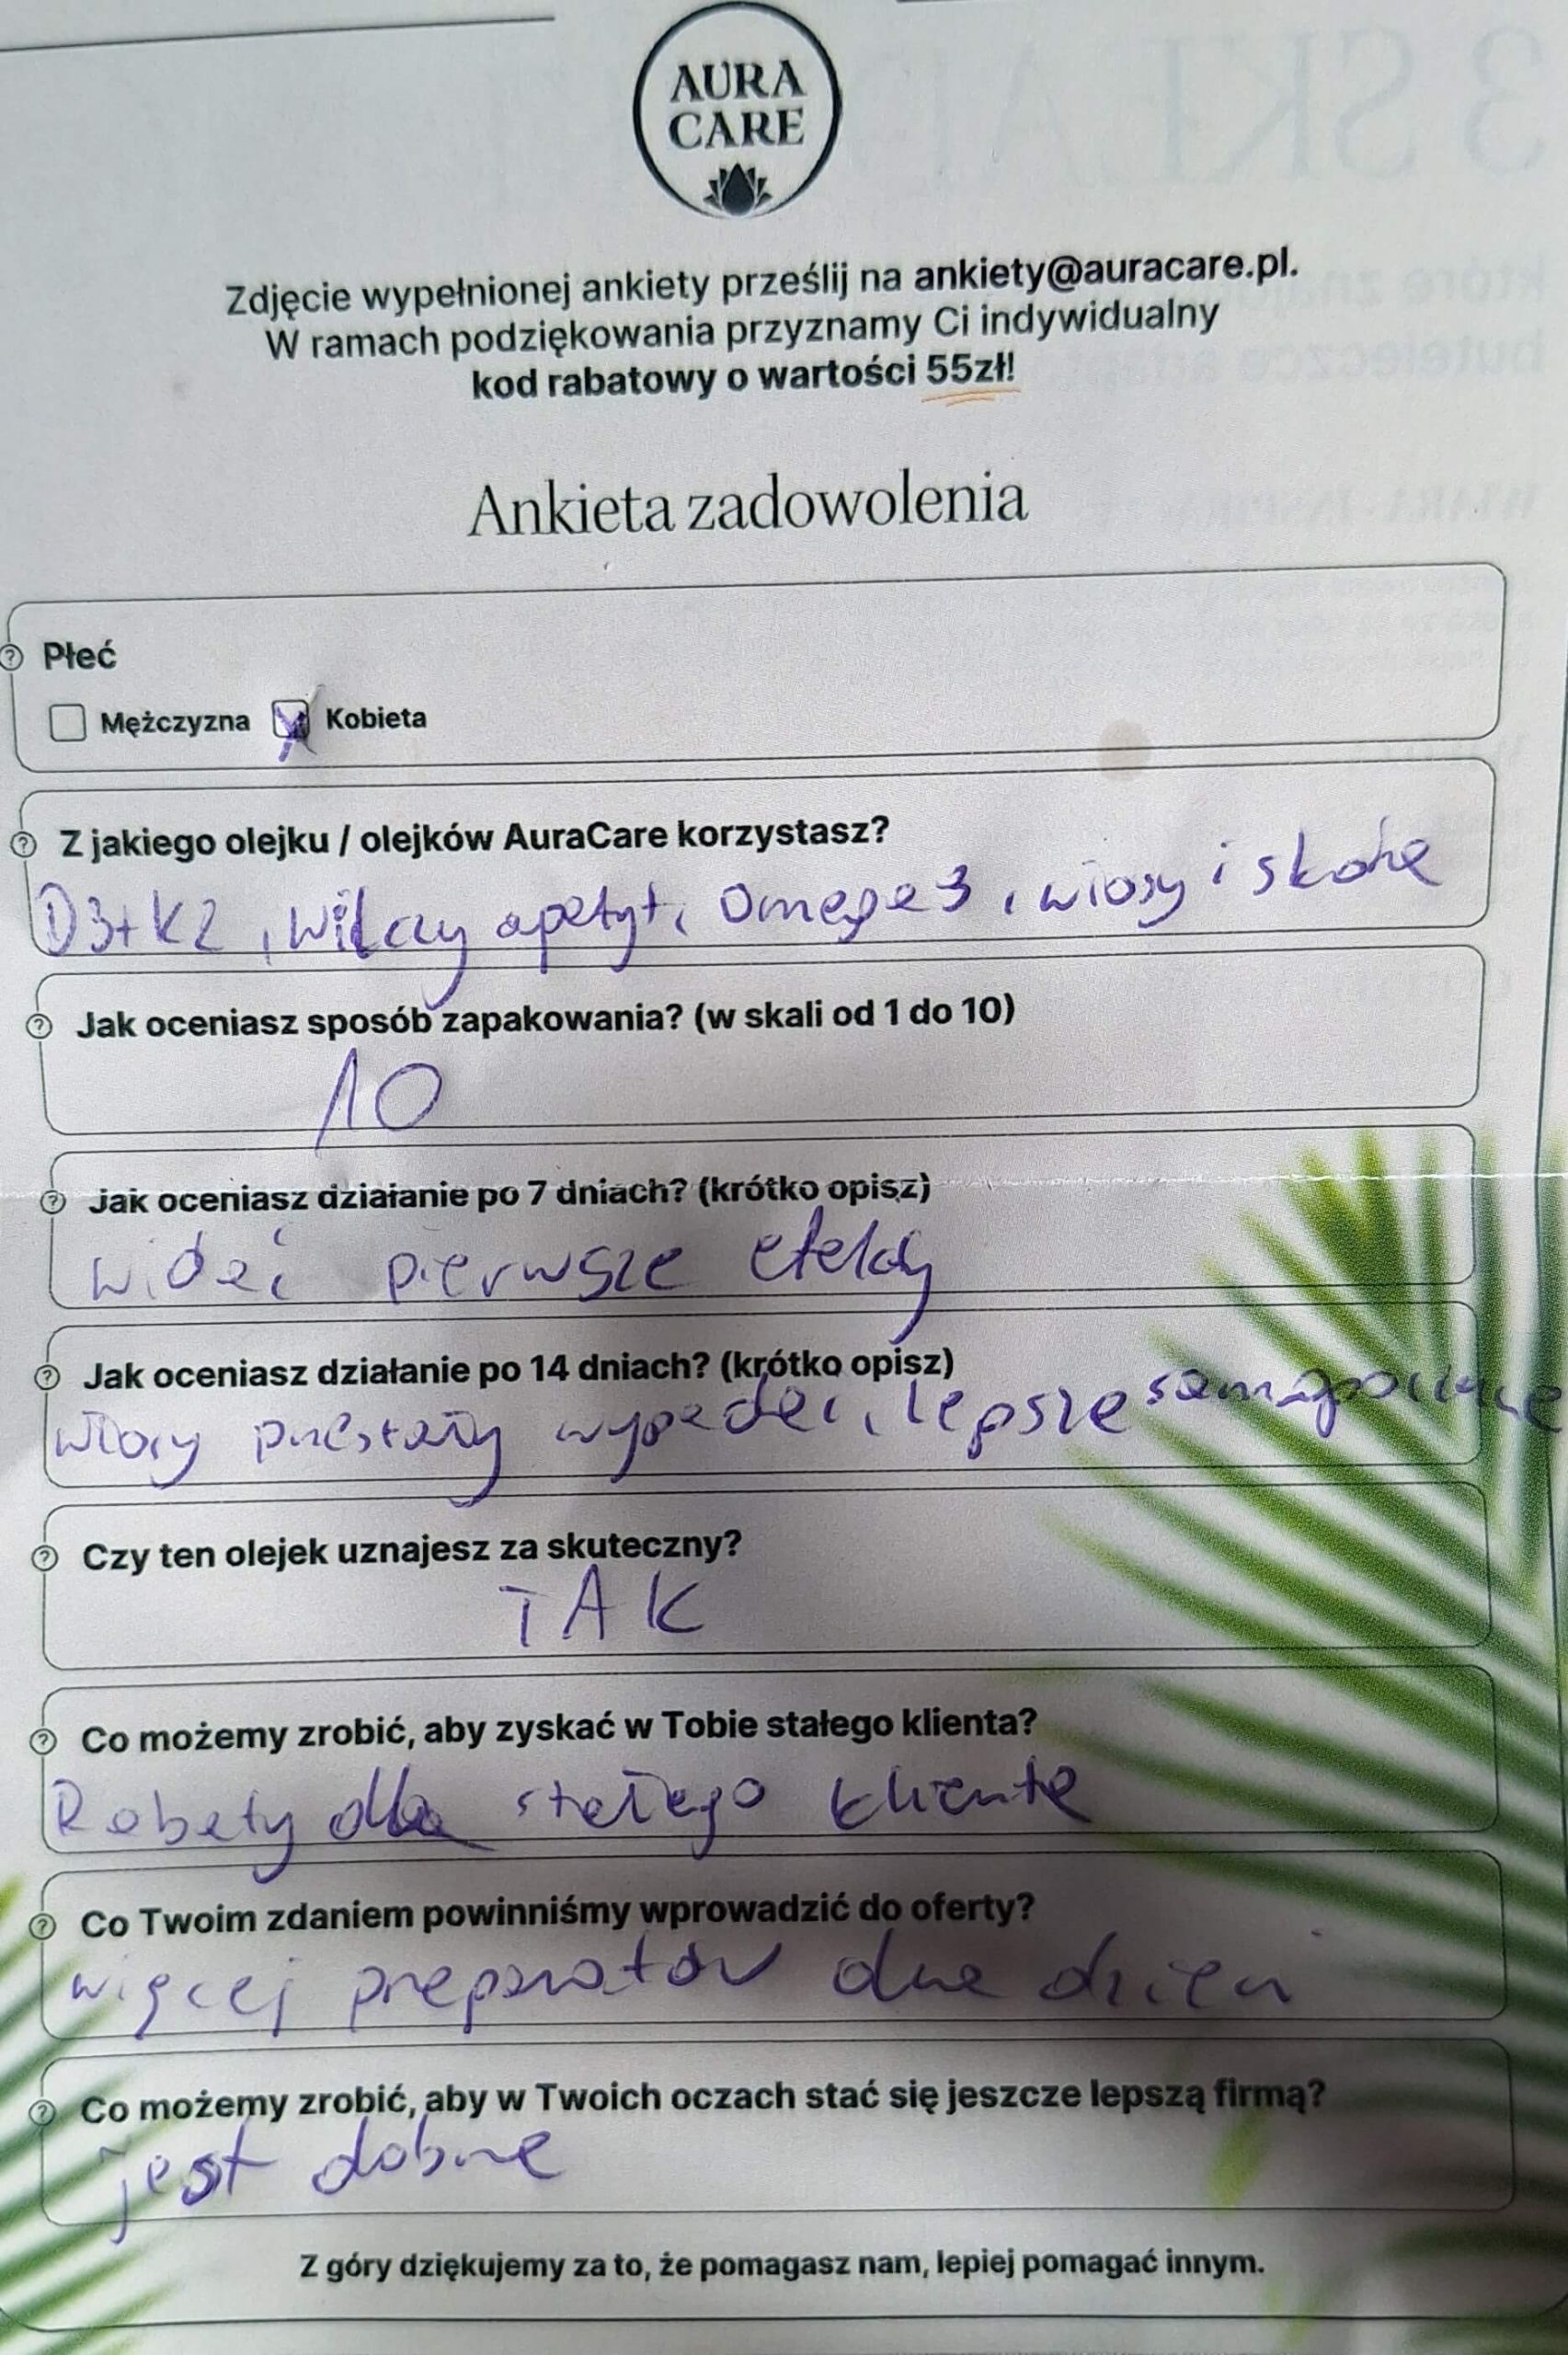 AURA
CARE
Zdjęcie wypełnionej ankiety prześlij na ankiety@auracare.pl.
W ramach podziękowania przyznamy Ci indywidualny
kod rabatowy o wartości 55zł!
Ankieta zadowolenia
Płeć
Mężczyzna Kobieta
Z jakiego olejku / olejków AuraCare korzystasz?
D3+K2, Wilczy apetyt, Omega 3, włosy i skóra
Jak oceniasz sposób zapakowania? (w skali od 1 do 10)
10
Jak oceniasz działanie po 7 dniach? (krótko opisz)
widać pierwsze efekty
Jak oceniasz działanie po 14 dniach? (krótko opisz)
włosy przestały wypadać, lepsze samopoczucie
Czy ten olejek uznajesz za skuteczny?
TAK
Co możemy zrobić, aby zyskać w Tobie stałego klienta?
Rabaty dla stałego klienta
Co Twoim zdaniem powinniśmy wprowadzić do oferty?
więcej preparatów
Co możemy zrobić, aby w Twoich oczach stać się jeszcze lepszą firmą?
jest dobrze
Z góry dziękujemy za to, że pomagasz nam, lepiej pomagać innym.